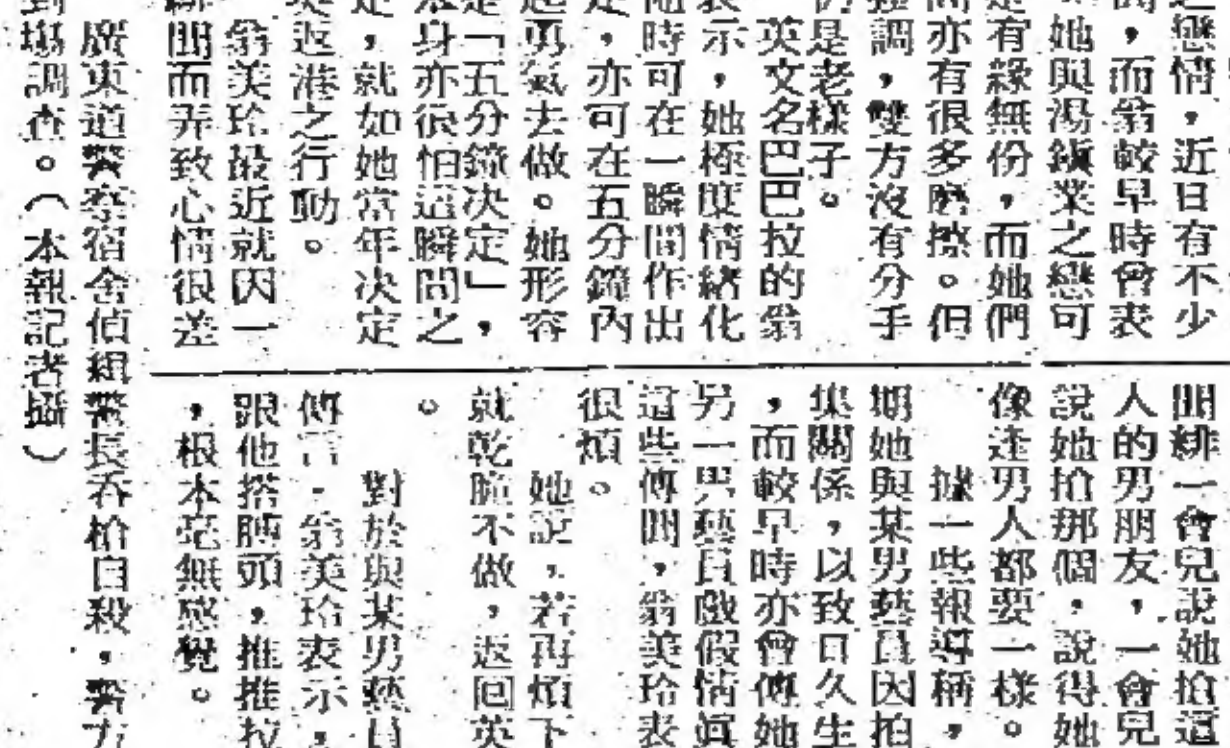 戀情，近日有不少
，而翁較早時曾表
她與湯鎮業之戀可
是有緣無份，而她們
間亦有很多磨擦。但
強調，雙方沒有分手
仍是老樣子。
英文名巴巴拉的翁
表示，她極度情緒化
隨時可在一瞬間作出
定，亦可在五分鐘內
起勇氣去做。她形容
是「五分鐘決定」，
身亦很怕這瞬間之
定，就如她當年決定
英返港之行動。
翁美玲最近就因一
緋聞而弄致心情很差
聞緋一會兒說她搶這
人的男朋友，一會兒
說她搶那個，說得她
像逢男人都要一樣。
據一些報導稱，
期她與某男藝員因拍
集關係，以致日久生
，而較早時亦曾傳她
另一男藝員戲假情眞
這些傳聞，翁美玲表
很煩。
她說，若再煩下
就乾脆不做，返回英
。
對於與某男藝員
傳言，翁美玲表示，
跟他搭膊頭，推推拉
，根本毫無感覺。
廣東道警察宿舍偵組警長吞槍自殺，警方
到場調查。（本報記者攝）